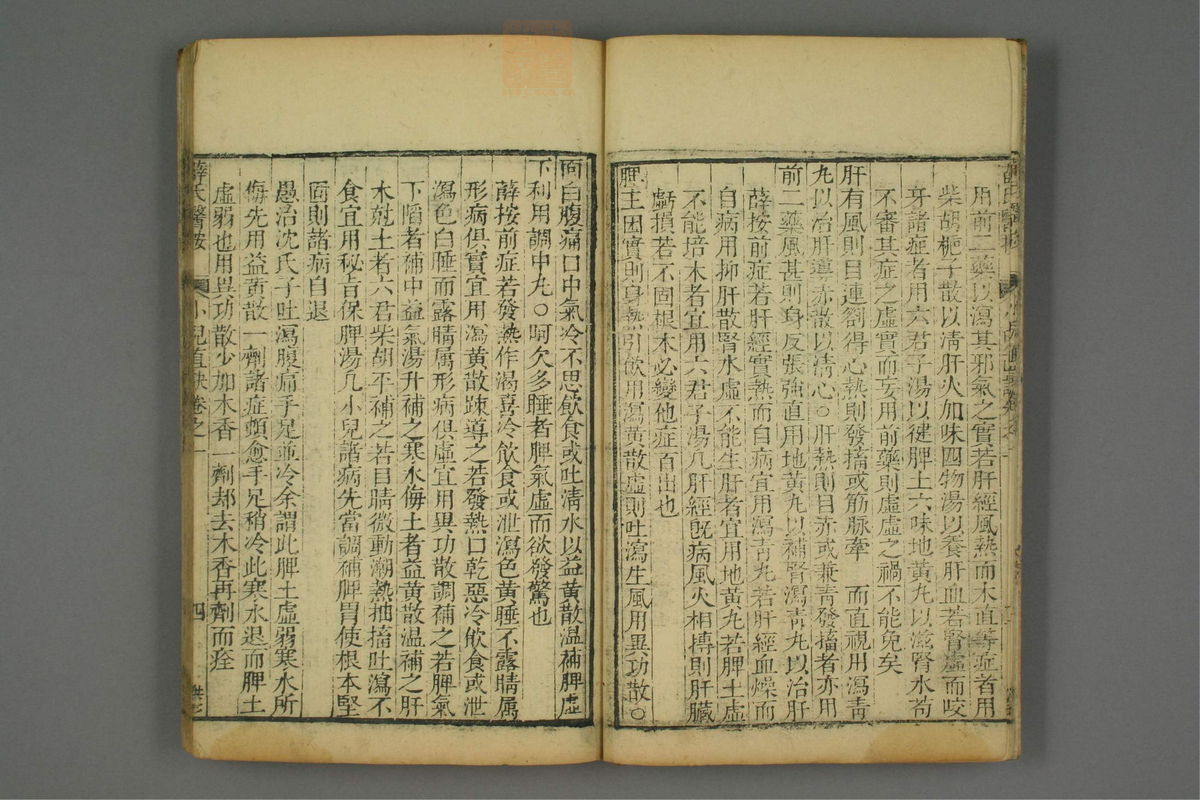 用前二藥以瀉其邪氣之實若肝經風熱而木直等症者用
柴胡梔子散以清肝火加味四物湯以養肝血若腎虛而咬
牙諸症者用六君子湯以健脾土六味地黃丸以滋腎水苟
不審其症之虛實而妄用前藥則虛虛之禍不能免矣
肝有風則目連劄得心熱則發搐或筋脉牽 而直視用瀉青
丸以治肝導赤散以清心○肝熱則目赤或兼青發搐者亦用
前二藥風甚則身反張強直用地黃丸以補腎瀉青丸以治肝
薛按前症若肝經實熱而自病宜用瀉青丸若肝經血燥而
自病用抑肝散腎水虛不能生肝者宜用地黃丸若脾土虛
不能培木者宜用六君子湯凡肝經旣病風火相摶則肝臟
虧損若不固根木必變他症百出也
脾主困實則身熱引飲用瀉黃散虛則吐瀉生風用異功散○
面白腹痛口中氣冷不思飲食或吐清水以益黃散温補脾虛
下利用調中丸○呵欠多睡者脾氣虛而欲發驚也
薛按前症若發熱作渴喜冷飲食或泄瀉色黃睡不露睛属
形病俱實宜用瀉黃散踈導之若發熱口乾惡冷飲食或泄
瀉色白睡而露睛属形病俱虛宜用異功散調補之若脾氣
下䧟者補中益氣湯升補之寒水侮土者益黃散温補之肝
木尅土者六君柴胡平補之若目睛微動潮熱抽搐吐瀉不
食宜用秘旨保脾湯凡小兒諸病先當調補脾胃使根本堅
固則諸病自退
愚治沈氏子吐瀉腹痛手足並冷余謂此脾土虛弱寒水所
侮先用益黃散一劑諸症頓愈手足稍冷此寒水退而脾土
虛弱也用異功散少加木香一劑却去木香再劑而痊
薛氏醫按 小兒直訣卷之一 四